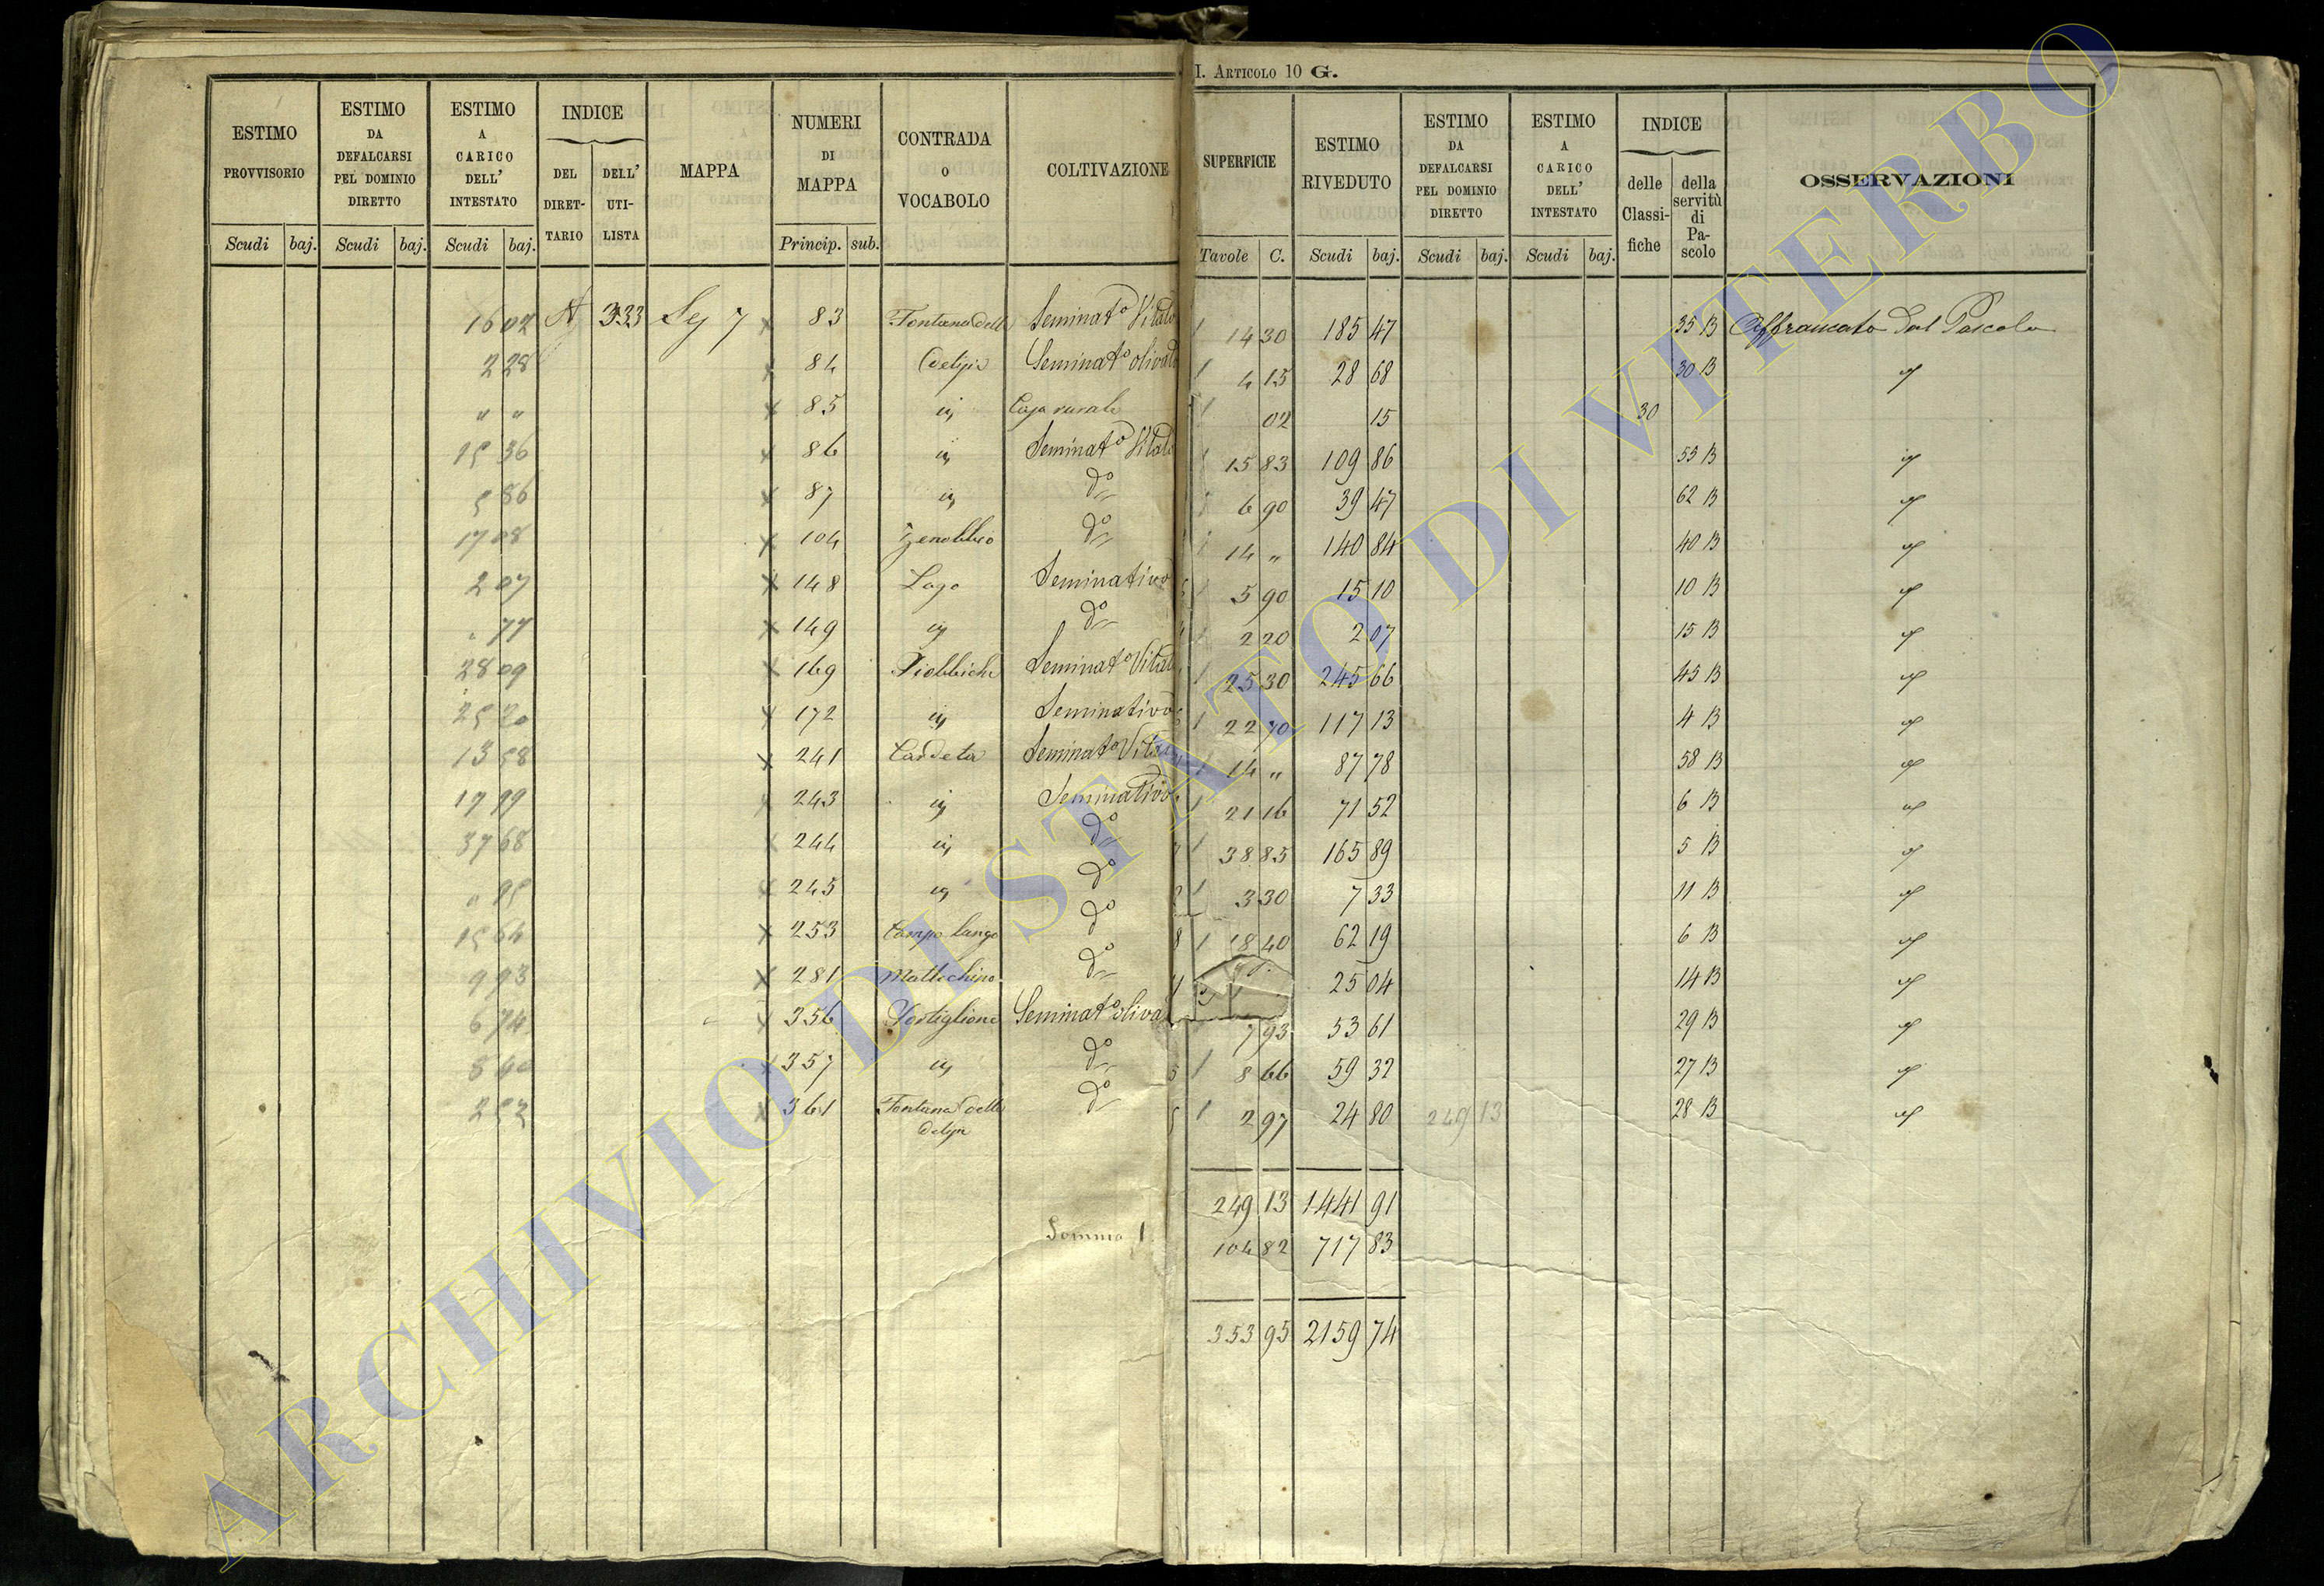 I. ARTICOLO 10 G.
ESTIMO PROVVISORIO Scudi baj.
ESTIMO DA DEFALCARSI PEL DOMINIO DIRETTO Scudi baj.
ESTIMO A CARICO DELL' INTESTATO Scudi baj.
INDICE DEL DIRET-TARIO DELL' UTI-LISTA
MAPPA
NUMERI DI MAPPA Princip. sub.
CONTRADA o VOCABOLO
COLTIVAZIONE
SUPERFICIE Tavole C.
ESTIMO RIVEDUTO Scudi baj.
ESTIMO DA DEFALCARSI PEL DOMINIO DIRETTO Scudi baj.
ESTIMO A CARICO DELL' INTESTATO Scudi baj.
INDICE delle Classi-fiche della servitù di Pa-scolo
OSSERVAZIONI
16 02 A 333 Sez 7 x 83 Fontana delle Seminat° Vitato 1 14 30 185 47 35 B Affrancato dal Pascolo
2 28 x 84 Seminat° olivato 1 4 15 28 68 30 B
" " x 85 Casa rurale 1 02 15 30
15 36 x 86 Seminat° Vitato 15 83 109 86 55 B
5 86 x 87 d° 6 90 39 47 62 B
17 08 x 104 Zenobbio d° 14 " 140 84 40 B
2 07 x 148 Lago Seminativo 1 5 90 15 10 10 B
" 77 x 149 d° 2 20 2 07 15 B
28 09 x 169 Seminat° Vitato 1 25 30 245 66 45 B
25 20 x 172 Seminativo 1 22 70 117 13 4 B
13 58 x 241 Cardeta Seminat° 1 14 " 87 78 58 B
17 99 x 243 Seminativo 1 21 16 71 52 6 B
37 68 x 244 d° 1 38 85 165 89 5 B
" 95 x 245 d° 1 3 30 7 33 11 B
15 64 x 253 Campo lungo d° 1 18 40 62 19 6 B
9 93 x 281 d° 25 04 14 B
6 74 x 356 Seminat° 7 93 53 61 29 B
x 357 d° 1 8 66 59 32 27 B
2 52 x 361 Fontana delle d° 1 2 97 24 80 249 13 28 B
249 13 1441 91
Somma 1 104 82 717 83
353 95 2159 74
ARCHIVIO DI STATO DI VITERBO